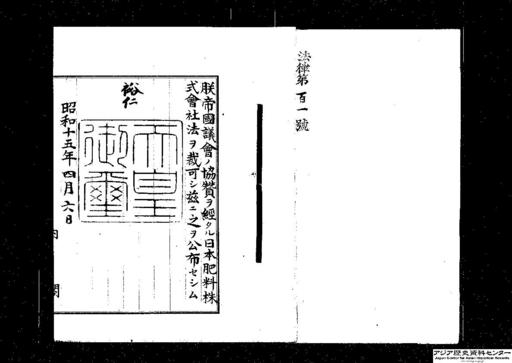 法律第百一號
朕帝國議會ノ協贊ヲ經タル日本肥料株
式會社法ヲ裁可シ玆ニ之ヲ公布セシム
裕仁
天皇
御璽
昭和十五年四月六日
内 閣
アジア歴史資料センター
Japan Center for Asian Historical Records